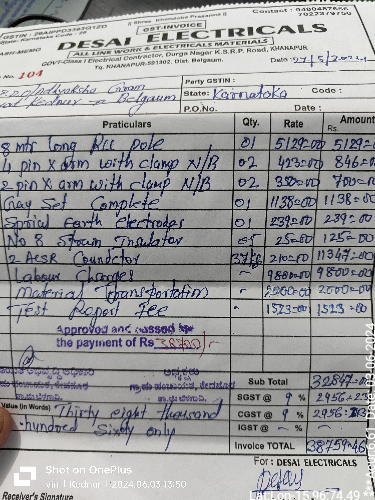 || Shree Khanadaya Prasanna ||
Contact : 9480487656
7022979750
GST-INVOICE
DESAI ELECTRICALS
ALL LINE WORK & ELECTRICALS MATERIALS
GOVT-Class I Electrical Contractor, Durga Nagar K.S.R.P. Road, KHANAPUR
Tq. KHANAPUR-591302, Dist. Belgaum.
No. 104
Party GSTIN :
State: Karnataka Code :
P.O.No. Date :
Belgaum
Praticulars Qty. Rate Amount Rs.
8 mtr long Rcc pole 01 5129=00 5129=
4 pin X arm with clamp N/B 02 423=00 846=00
2 pin X arm with clamp N/B 02 350=00 700=00
Gay Set Complete 01 1138=00 1138=00
Spical Earth electrodes 01 239=00 239=00
No 8 Stown Insulator 05 25=00 125=00
2 AcSR Counductor 210=00 11347=00
Labour Charges - 9800=00 9800=00
Material Transportation - 2000=00 2000=00
Test Report Fee - 1523=00 1523=00
Approved and passed for
the payment of Rs. 38700/-
Sub Total 32847=00
SGST @ 9 % 2956=23
CGST @ 9 % 2956=23
IGST @ - %
Value (in Words) Thirty eight thousand
hundred Sixty only
Invoice TOTAL 38759=46
For : DESAI ELECTRICALS
Shot on OnePlus
vini | Kednur | 2024.06.03 13:50
Receiver's Signature